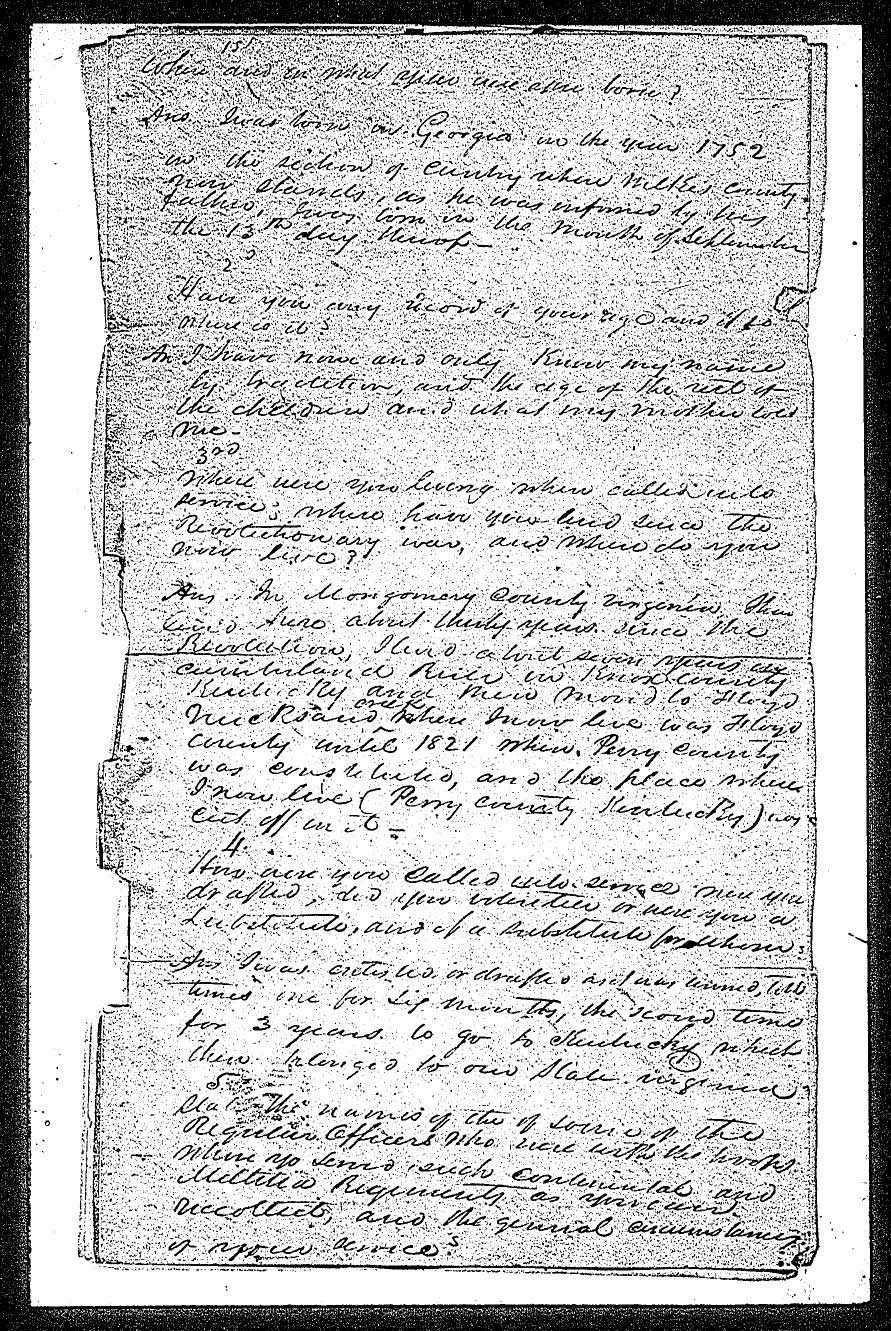 1st
When and in what year were you born?
Ans I was born in Georgia in the year 1752
in the section of cuntry where Wilkes County
now stands, as he was informed by his
father, I was born in the month of September
the 13th day thereof –
2d
Have you any record of your age and if so
where is it?
An I have none and only know my name
by tradition, and the age of the rest of
the children and what my mother told
me –
3rd
Where were you living when called into
service; where have you lived since the
Revolutionary war, and where do you
now live?
Ans. In Montgomery County virginia then
lived there about thirty years since the
Revolution, I lived about seven years on
cumberland River in Knox county
Kentucky and then moved to Floyd
creek
where I now live was Floyd
county until 1821 when Perry County
was constituted, and the place where
I now live (Perry county Kentucky) was
cut off in it –
4
How were you called into service were you
drafted, did you volunteer or were you a
Substitute, and if a substitute for whom?
Ans I was or drafted and was two
times one for Six months, the second time
for 3 years to go to Kentucky which
then belonged to our State virginia
5
State the names of the of some of the
Regular Officers who were with the troops
where you served such continental and
Millitia Regiments as you can
reccollect, and the general circumstances
of your service?